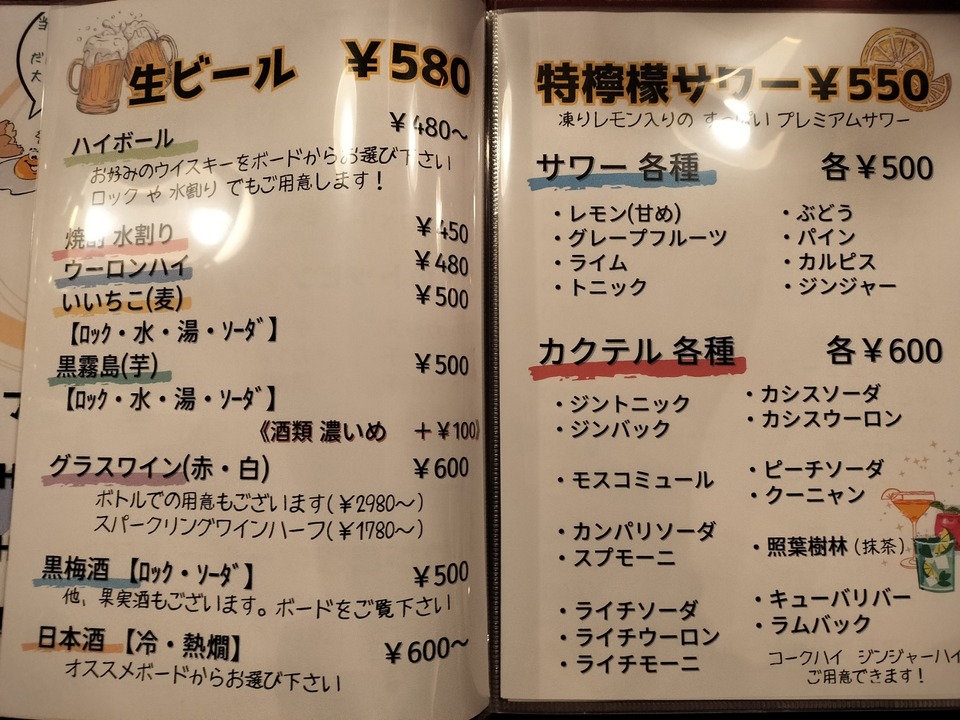 生ビール ￥580
ハイボール ￥480～
お好みのウイスキーをボードからお選び下さい
ロック や 水割り でもご用意します！
焼酎 水割り ￥450
ウーロンハイ ￥480
いいちこ(麦) ￥500
【ﾛｯｸ・水・湯・ｿｰﾀﾞ】
黒霧島(芋) ￥500
【ﾛｯｸ・水・湯・ｿｰﾀﾞ】
《酒類 濃いめ ＋￥100》
グラスワイン(赤・白) ￥600
ボトルでの用意もございます(￥2980～)
スパークリングワインハーフ(￥1780～)
黒梅酒 【ﾛｯｸ・ｿｰﾀﾞ】 ￥500
他、果実酒もございます。ボードをご覧下さい
日本酒 【冷・熱燗】 ￥600～
オススメボードからお選び下さい
特檸檬サワー￥550
凍りレモン入りの すっぱい プレミアムサワー
サワー 各種 各￥500
・レモン(甘め)
・グレープフルーツ
・ライム
・トニック
・ぶどう
・パイン
・カルピス
・ジンジャー
カクテル 各種 各￥600
・ジントニック
・ジンバック
・モスコミュール
・カンパリソーダ
・スプモーニ
・ライチソーダ
・ライチウーロン
・ライチモーニ
・カシスソーダ
・カシスウーロン
・ピーチソーダ
・クーニャン
・照葉樹林（抹茶）
・キューバリバー
・ラムバック
コークハイ ジンジャーハイ
ご用意できます！